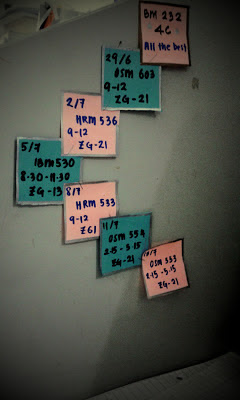 BM 232
4C
All the best
29/6
OSM 603
9-12
ZG-21
2/7
HRM 536
9-12
ZG-21
5/7
IBM 530
8.30-11.30
ZG-13
8/7
HRM 533
9-12
ZG1
11/7
OSM 554
2.15-5.15
ZG-21
OSM 333
2.15-5.15
ZG-21